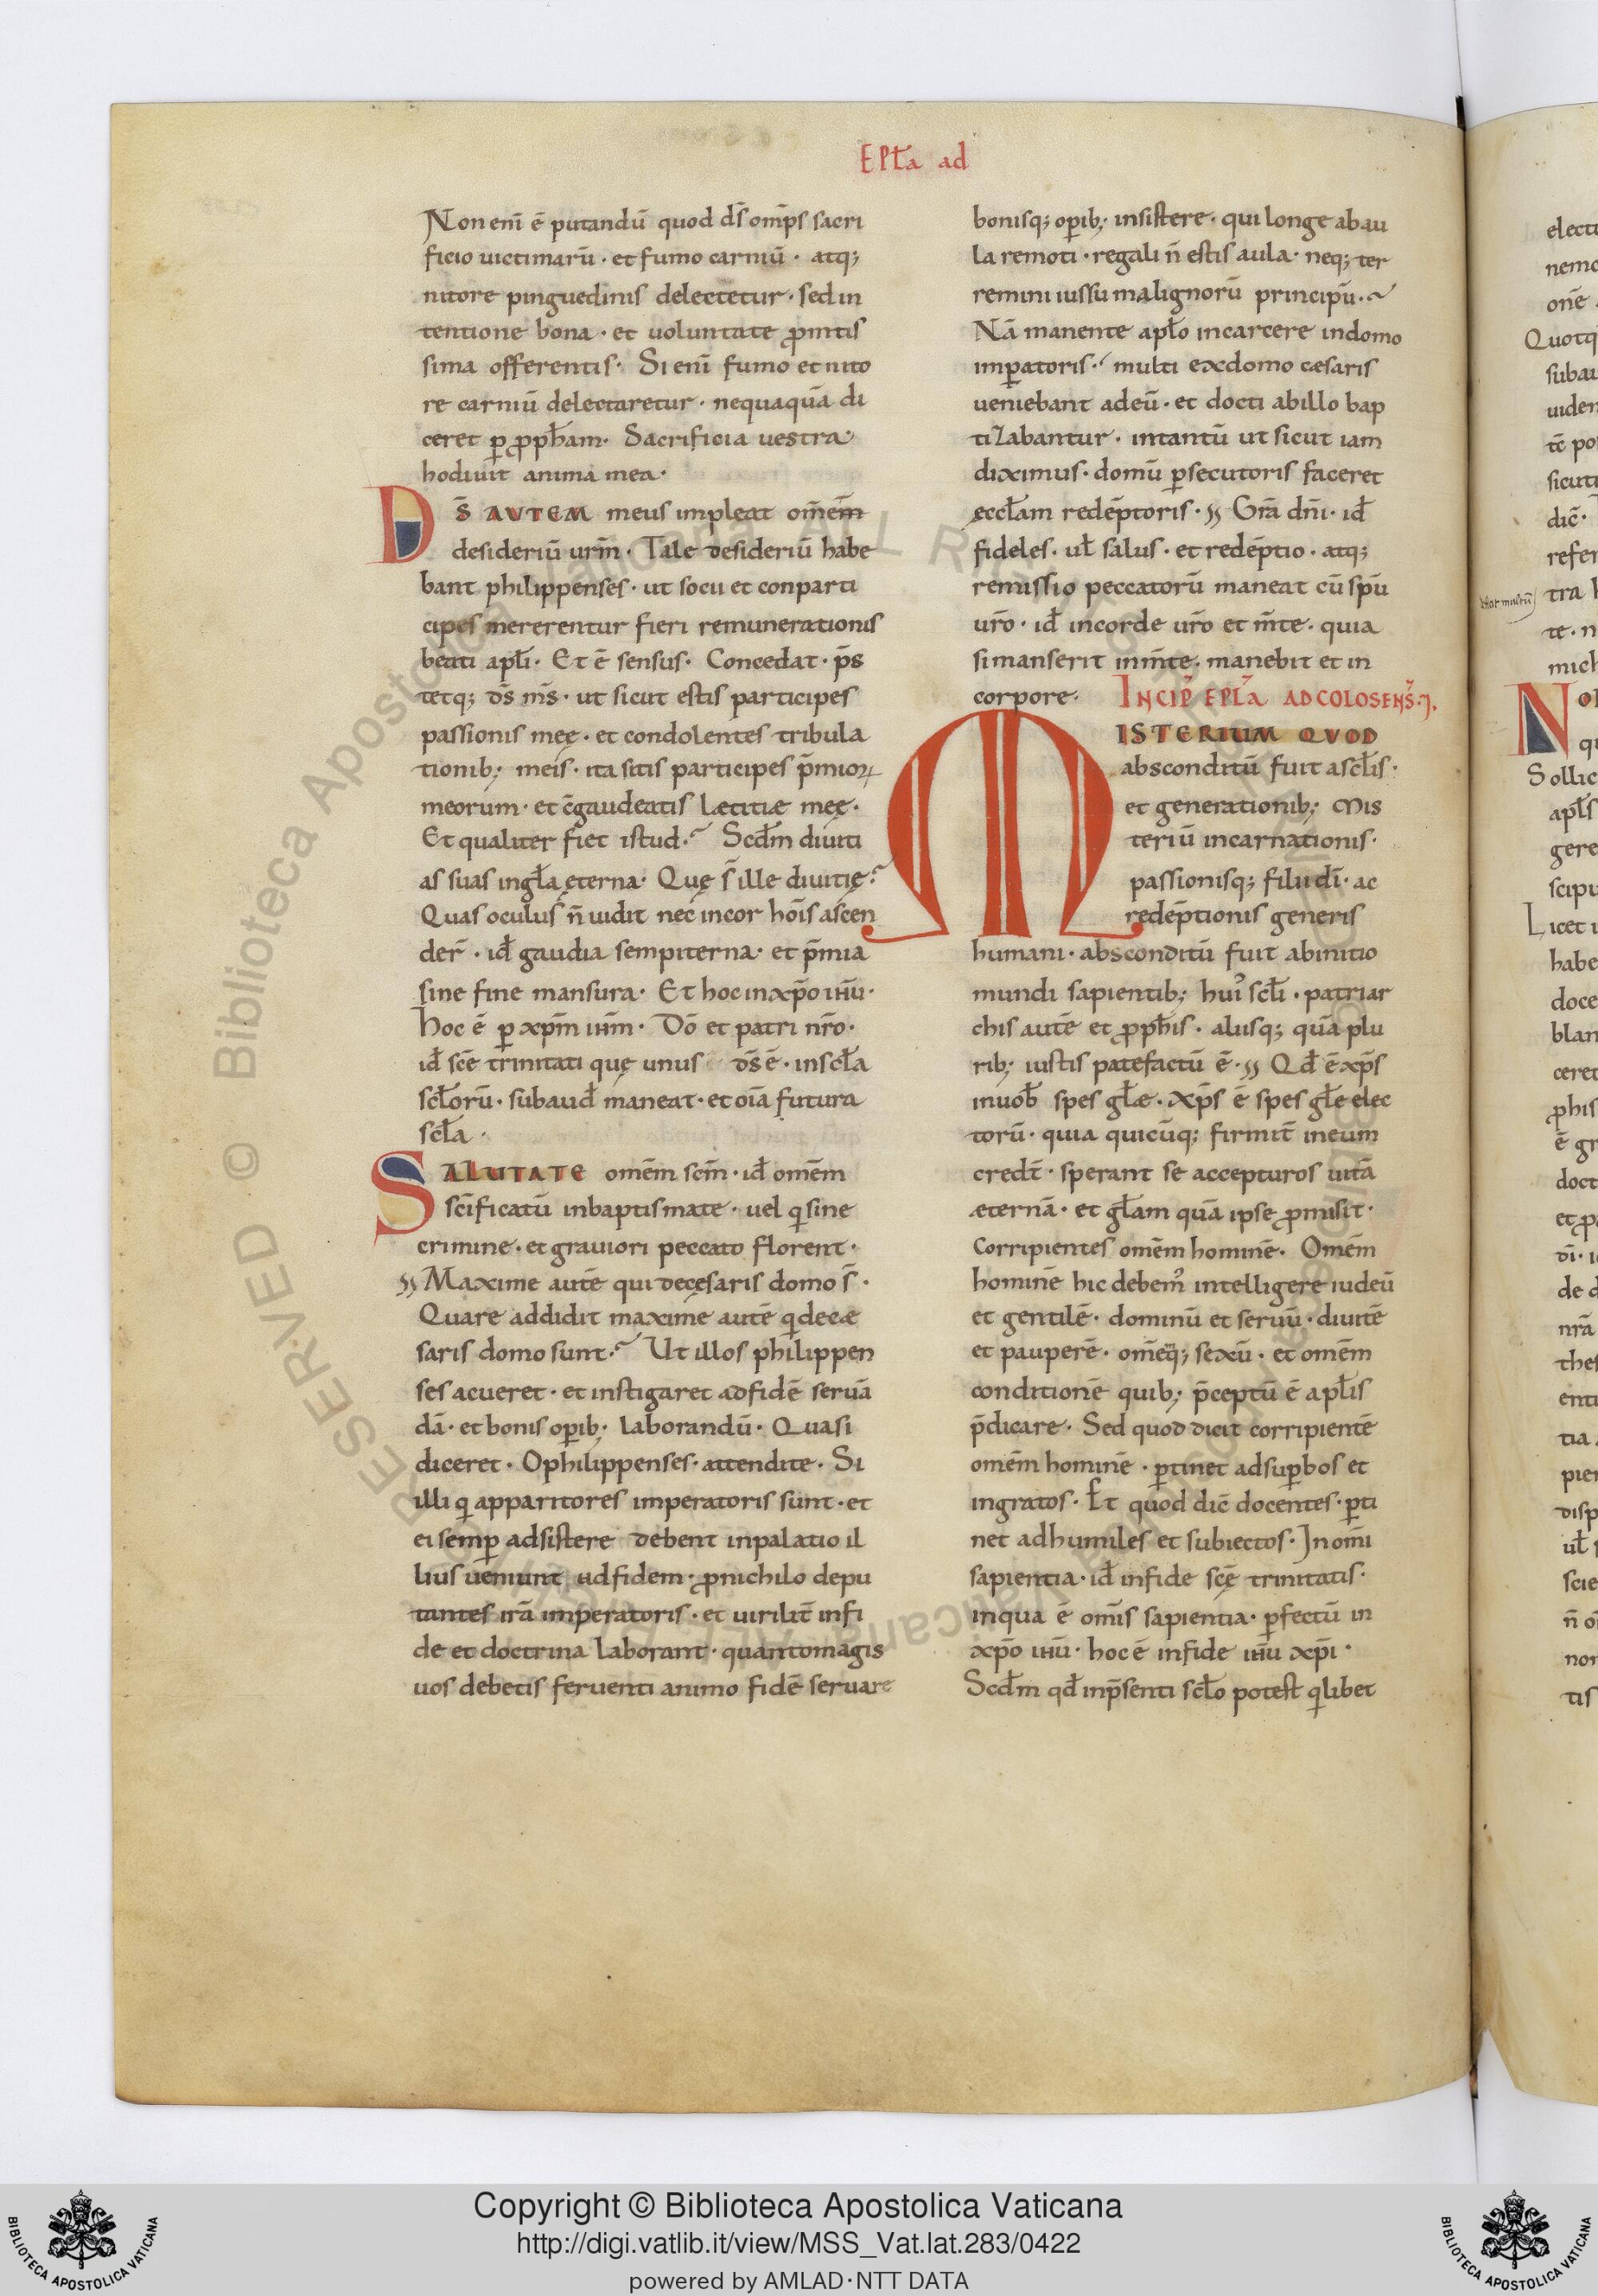 EPLa ad
Non eni ē putandū quod ds̄ om̄ps sacri
ficio uictimarū · et fumo carniū · atq;
nitore pinguedinis delectetur · sed in
tentione bona · et uoluntate p̄mtis
sima offerentis · Si eni fumo et nito
re carniū delectaretur · nequaquā di
ceret ꝑ ꝓph̄am · Sacrificia uestra
hodiuit anima mea ·
DS̄ AUTEM meus impleat om̄em
desideriū ur̄m · Tale desideriū habe
bant philippenses · ut socii et conparti
cipes mererentur fieri remunerationis
beati apl̄i · Et ē sensus · Concedat · p̄s
tetq; ds̄ ms̄ · ut sicut estis participes
passionis meę · et condolentes tribula
tionib; meis · ita sitis participes p̄mioꝝ
meorum · et c̄gaudeatis Lætitiæ meę ·
Et qualiter fiet istud · Scd̄m diuiti
as suas in gl̄a ęterna · Quę s̄ ille diuitię
Quas oculus n̄ uidit nec in cor hōis ascen
der̄ · id̄ gaudia sempiterna · et p̄mia
sine fine mansura · Et hoc in xp̄o ihū ·
Hoc ē ꝑ xp̄m ihm̄ · Dō et patri nr̄o ·
id̄ sc̄e trinitati quę unus ds̄ ē · in scl̄a
scl̄orū · subaud̄ maneat · et oīa futura
scl̄a ·
SALUTATE omēm sc̄m · id̄ omēm
sc̄ificatū in baptismate · uel qi sine
crimine · et grauiori peccato florent ·
Maxime autē qui de cęsaris domo s̄ ·
Quare addidit maxime autē qi de cæ
saris domo sunt · Ut illos philippen
ses acueret · et instigaret ad fidē seruā
dā · et bonis oꝑib; laborandū · Quasi
diceret · O philippenses · attendite · Si
illi qi apparitores imperatoris sunt · et
ei semꝑ adsistere debent in palatio il
lius ueniunt ad fidem · ꝓ nichilo depu
tantes irā imperatoris · et uirilit̄ in fi
de et doctrina laborant · quanto magis
uos debetis feruenti animo fidē seruare
bonisq; oꝑib; insistere · qui longe ab au
la remoti · regali n̄ estis aula · neq; ter
remini iussu malignorū principū ·
Nā manente apl̄o in carcere in domo
imꝑatoris · multi ex domo cæsaris
ueniebant ad eū · et docti ab illo bap
tizabantur · in tantū ut sicut iam
diximus · domū ꝑsecutoris faceret
eccl̄am redēptoris · Grā dn̄i · id̄
fideles · ul̄ salus · et redēptio · atq;
remissio peccatorū maneat cū sp̄u
ur̄o · id̄ in corde ur̄o et m̄te · quia
si manserit in m̄te · manebit et in
corpore · INCIP̄ EPLa AD COLOSENS̄ · J ·
MISTERIUM QUOD
absconditū fuit a scl̄is ·
et generationib; Mis
teriū incarnationis ·
passionisq; filii dī · ac
redēptionis generis
humani · absconditū fuit ab initio
mundi sapientib; hui᾽ scl̄i · patriar
chis autē et ꝓph̄is · aliisq; quā plu
rib; iustis patefactū ē · Qd̄ ē xp̄s
in uob̄ spes gl̄æ · Xp̄s ē spes gl̄e elec
torū · quia quicūq; firmit̄ in eum
credt̄ · sperant se accepturos uitā
æternā · et gl̄am quā ipse ꝓmisit ·
Corripientes omēm hominē · Omēm
hominē hic debem᾽ intelligere iudeū
et gentilē · dominū et seruū · diuitē
et pauperē · omēq; sexū · et omēm
conditionē quib; p̄ceptū ē apl̄is
p̄dicare · Sed quod dicit corripientē
omēm hominē · ꝑtinet ad suꝑbos et
ingratos · Et quod dic̄ docentes · ꝑti
net ad humiles et subiectos · In om̄i
sapientia · id̄ in fide sc̄ę trinitatis ·
in qua ē om̄is sapientia · ꝑfectū in
xp̄o ihū · hoc ē in fide ihū xp̄i ·
Scd̄m qd̄ in p̄senti scl̄o potest qilibet
Copyright © Biblioteca Apostolica Vaticana
http://digi.vatlib.it/view/MSS_Vat.lat.283/0422
powered by AMLAD·NTT DATA
BIBLIOTECA APOSTOLICA VATICANA
BIBLIOTECA APOSTOLICA VATICANA